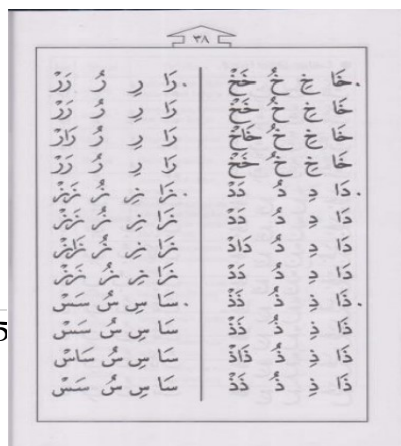 ٣٨
.خَا خِ خُ خَخْ
خَا خِ خُ خَخْ
خَا خِ خُ خَاخْ
خَا خِ خُ خَخْ
.دَا دِ دُ دَدْ
دَا دِ دُ دَدْ
دَا دِ دُ دَادْ
دَا دِ دُ دَدْ
.ذَا ذِ ذُ ذَذْ
ذَا ذِ ذُ ذَذْ
ذَا ذِ ذُ ذَاذْ
ذَا ذِ ذُ ذَذْ
.رَا رِ رُ رَرْ
رَا رِ رُ رَرْ
رَا رِ رُ رَارْ
رَا رِ رُ رَرْ
.زَا زِ زُ زَزْ
زَا زِ زُ زَزْ
زَا زِ زُ زَازْ
زَا زِ زُ زَزْ
.سَا سِ سُ سَسْ
سَا سِ سُ سَسْ
سَا سِ سُ سَاسْ
سَا سِ سُ سَسْ
5